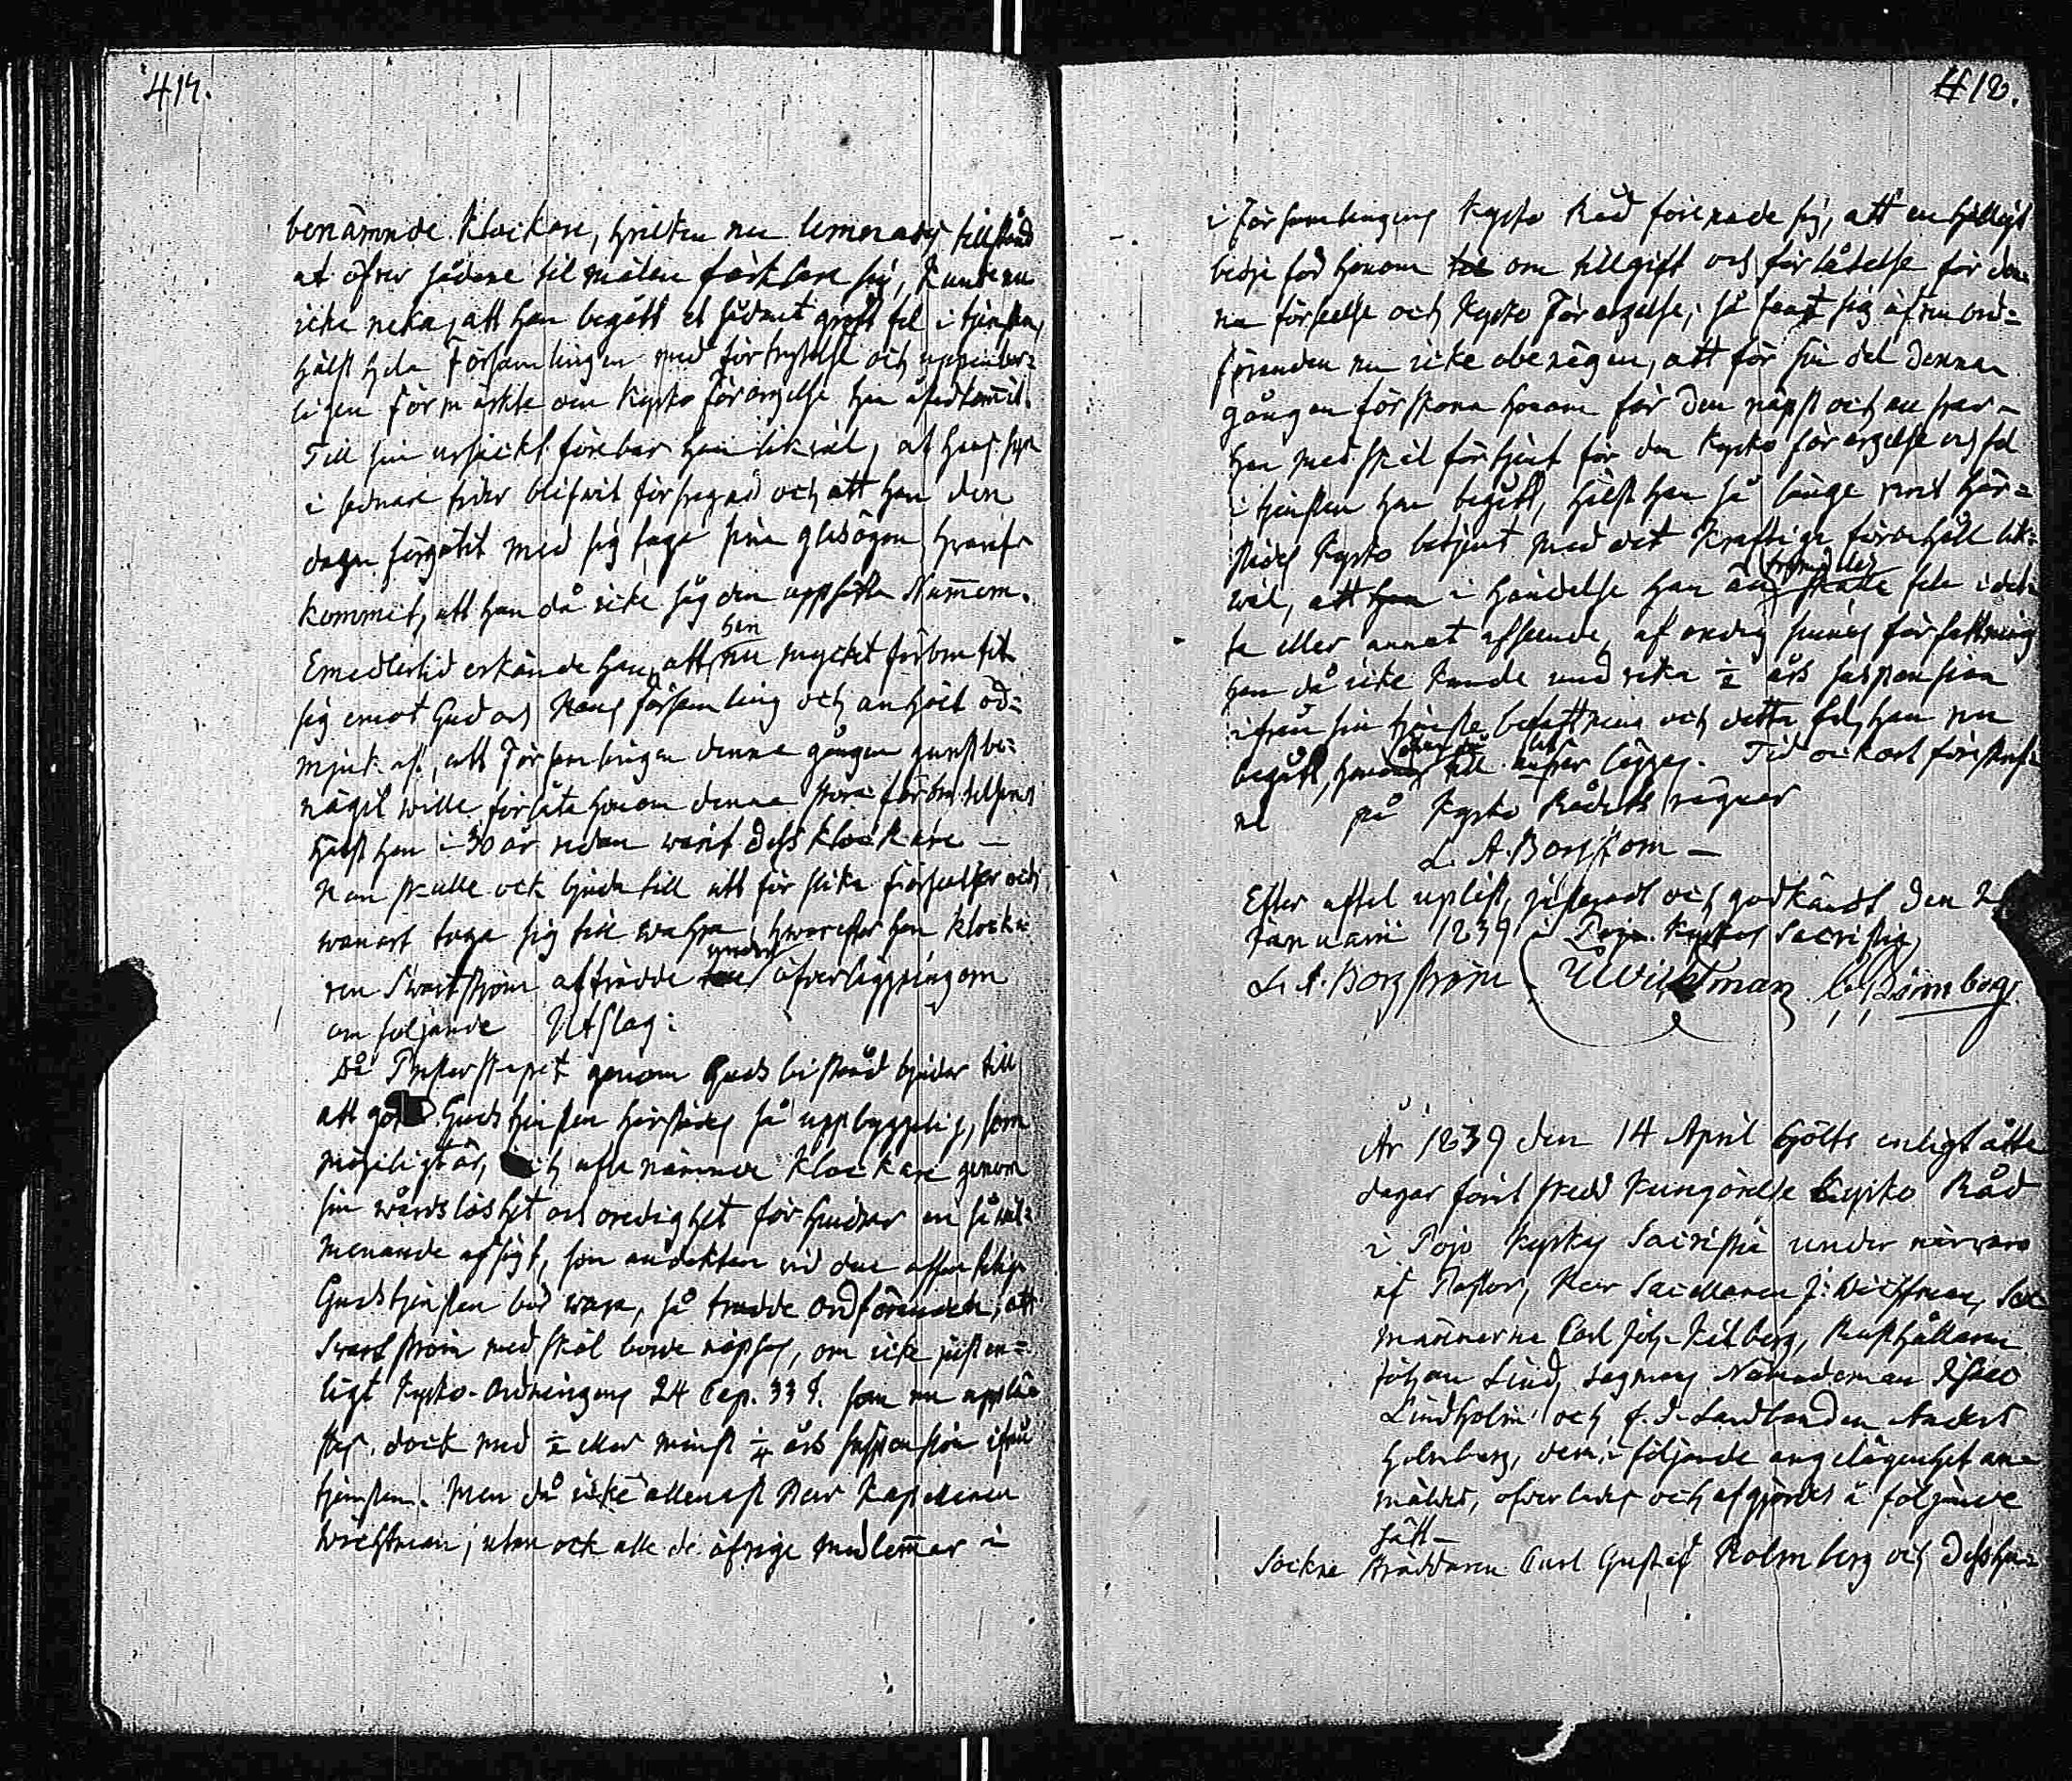 417.
benämnde Klockare, hvilken nu lemnades tillstånd
at öfver sådane til målen förklara sig, kunde nu
icke neka, att han begått et sådant groft fel i tjensten,
hälst hela Församlingen med förtrytelse och uppenbar=
ligen förmärkte den Kyrko förargelse han åstadkommit.
Till sin ursäckt förebar han likväl, at hans syn
i sednare tider blifvit försvagad och att han den
dagen förgätit med sig taga sina glasögon, hvaraf
kommit, att han då icke såg den uppsatta Numern.
Emedlertid erkände han, att han nu mycket förbrutit
sig emot Gud och Hans församling och anhöll öd=
mjuk ast, att Församlingen denna gången gunstbe=
nägit wille förlåta honom denna stora förbrytelsen
hälst han i 30 år redan warit dess Klockare —
Han skulle ock bjuda till att för slika förseelser och
wanart taga sig till wahra, hwarefter han Klocka=
ren Swartström afträdde under öfverläggning om
om följande Utslag:
Då Presterskapet genom Guds bistånd bjuder till
att göra Gudstjensten härstädes så uppbyggelig, som
möjeligt är, och ofta nämnde Klockare genom
sin wårdslöshet och oredighet förhindrar en så wäl=
menande afsigt, som andakten vid den offentliga
Gudstjensten bör wara, så trodde Ordföranden, att
Swartström med skäl borde näpsas, om icke just en=
ligt Kyrko-Ordningens 24 Cap. 33 §. som nu upplä=
stes, dock med ½ eller minst ¼ års suspension ifrån
tjensten. Men då icke allenast Herr Kapellanen
Wichtman, utan ock alla de öfrige medlemmar i
418.
i Församlingens Kyrko Råd förenade sig, att enhälligt
bedja för honom om tillgift och förlåtelse för den=
na förseelse och Kyrko Förargelse; så fant sig äfven ord=
föranden nu icke obenägen, att för sin del denna
gången förskona honom för den näpst och an svar
han med skäl förtjent för den Kyrko förargelse och fel
i tjensten han begått, hälst han så länge vid här=
städes Kyrko betjent med det kraftiga förehåll lik=
wäl, att i händelse han än framdeles skulle fela i det=
ta eller annat afseende, af ordig sinnes författning
han då icke kunde undvika ½ års suspension
ifrån sin tjenste befattning och detta fel, han nu
begått, honom till lägges. Tid och ort föreskrif=
ne på Kyrko Rådets vägnar
L. A. Borgström —
Efter aftal uplist, justerat och godkändt den 2
Januarii 1839 i Pojo Kyrkas Sacristia,
L. A. Borgström JWichtman C. Rönnberg
År 1839 den 14 April hölts enligt åtta
dagar förut skedd kungörelse Kyrko Råd
i Pojo Kyrkas Sacristia under närvaro
af Pastor, Herr Sacellanen J. Wichtman, Sex
männerne Carl Joh. Kilberg, Rusthållaren
Johan Lind, Nämndeman Isac
Lindholm och f. d. Landbonden Anders
Holmberg, dervid följande angelägenhet an=
mältes, öfverlades och afgjordes å följande
sätt —
Sockne Skräddaren Carl Gustaf Holmberg och dess hu=